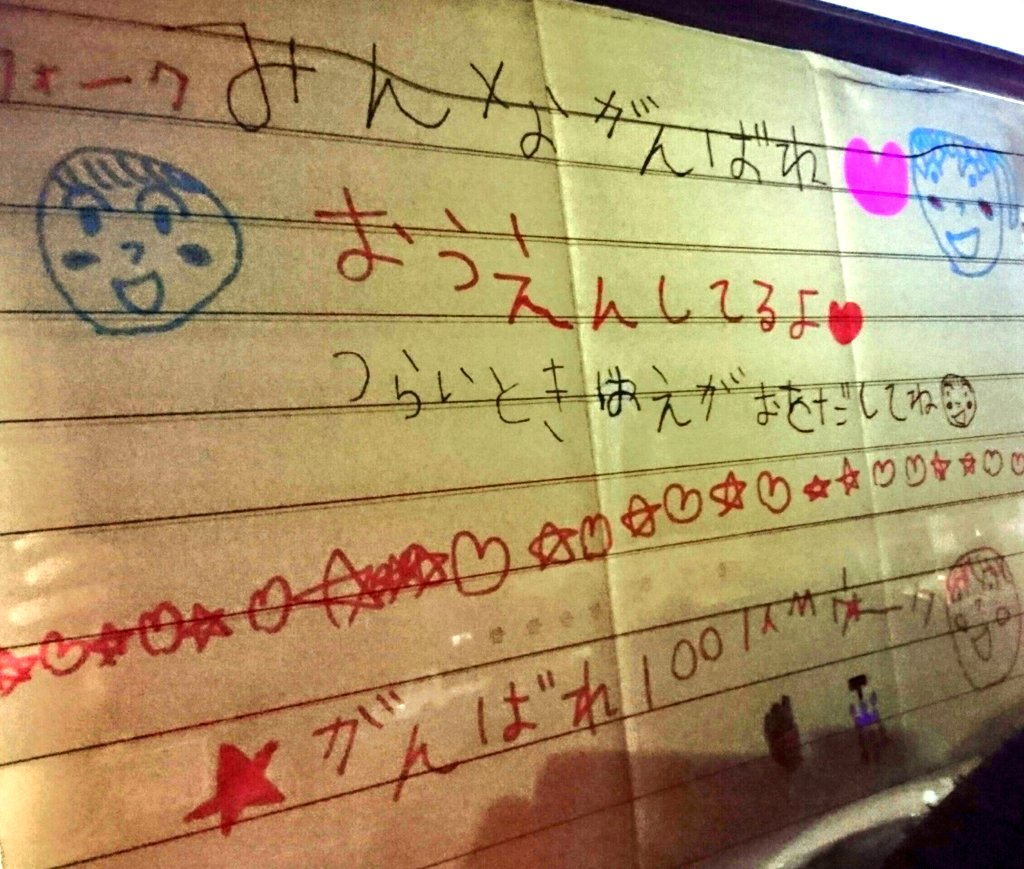 ウォーク みんながんばれ
おうえんしてるよ
つらいときはえがおをだしてね
がんばれ100kmウォーク